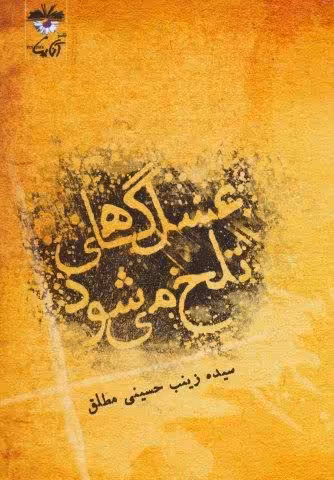 عسل گاهی
تلخ می شود
سیده زینب حسینی مطلق